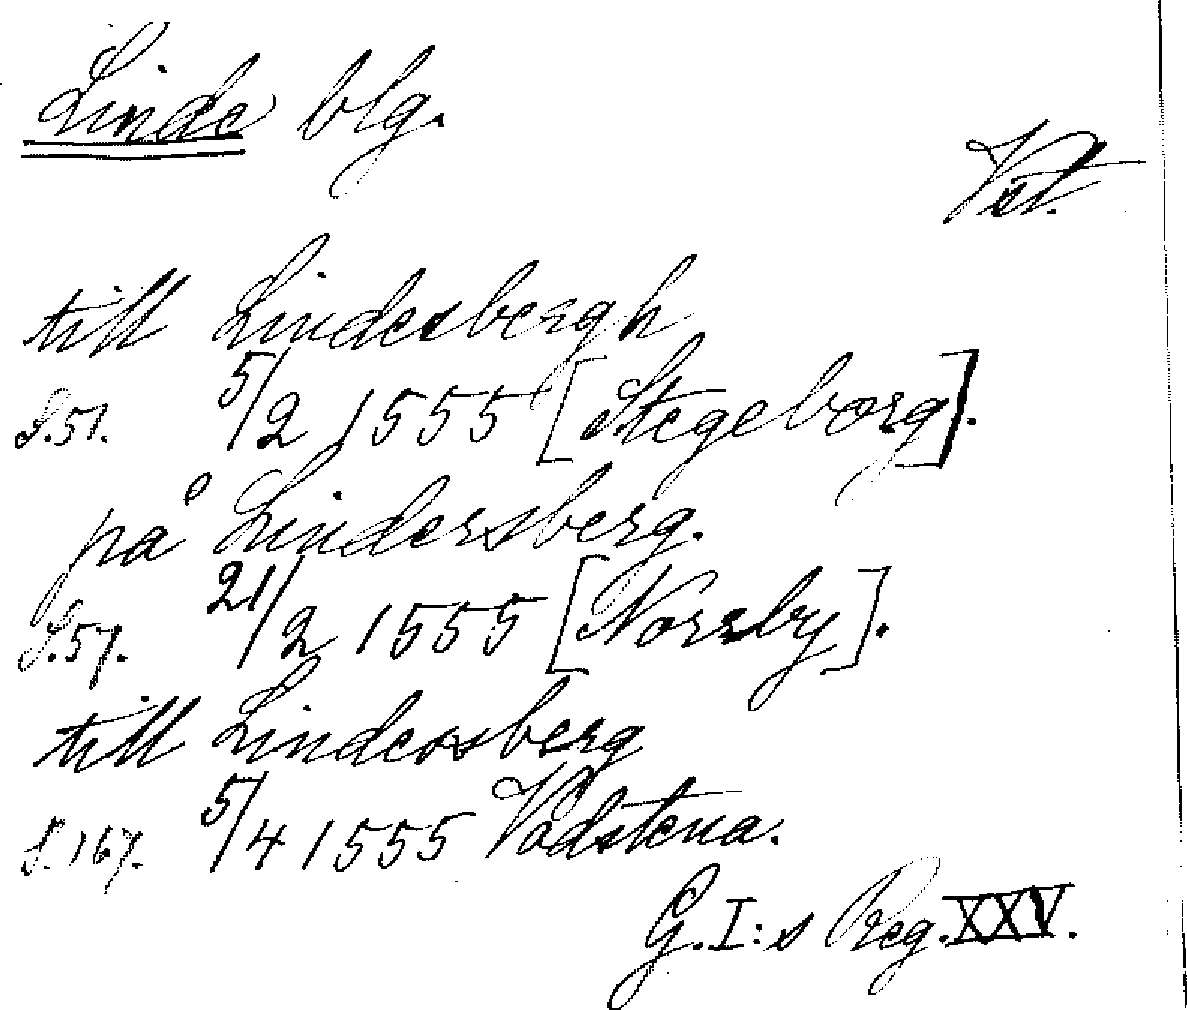 Linde blg.
Vst.
till Lindesbergh
S.51. 5/2 1555 [Stegeborg].
på Lindersberg.
S.57. 21/2 1555 [Norrby].
till Lindersberg
S.167. 5/4 1555 Vadstena.
G.I:s Reg. XXV.